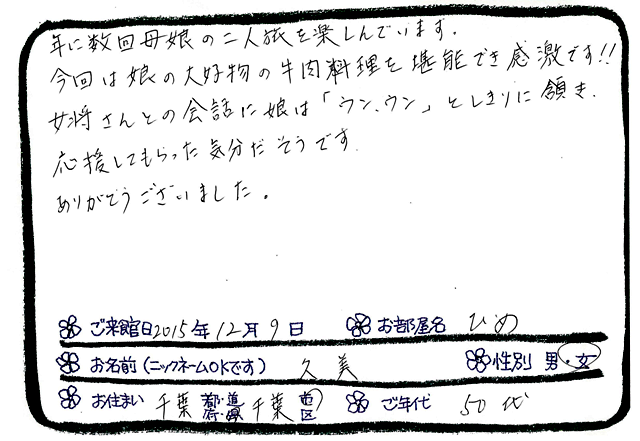 年に数回母娘の二人旅を楽しんでいます.
今回は娘の大好物の牛肉料理を堪能でき感激です!!
女将さんとの会話に娘は「ウン、ウン」としきりに頷き.
応援してもらった気分だそうです
ありがとうございました。
ご来館日2015年12月9日 お部屋名 ひめ
お名前(ニックネームOKです) 久美 性別 男・女
お住まい 千葉 都・道府・県 千葉 市区 ご年代 50代